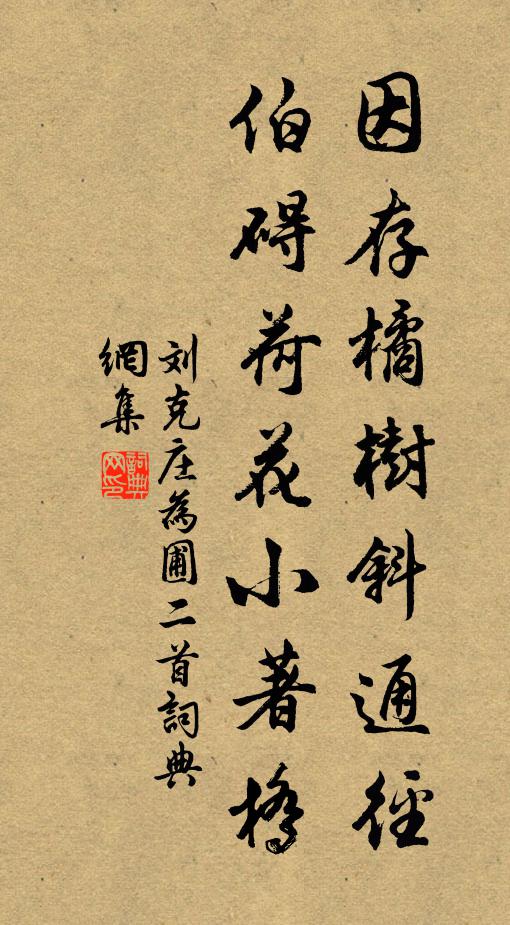 因存橘樹斜通徑
伯碍荷花小著橋
刘克庄為圃二首詞典
網集
詞典
网印